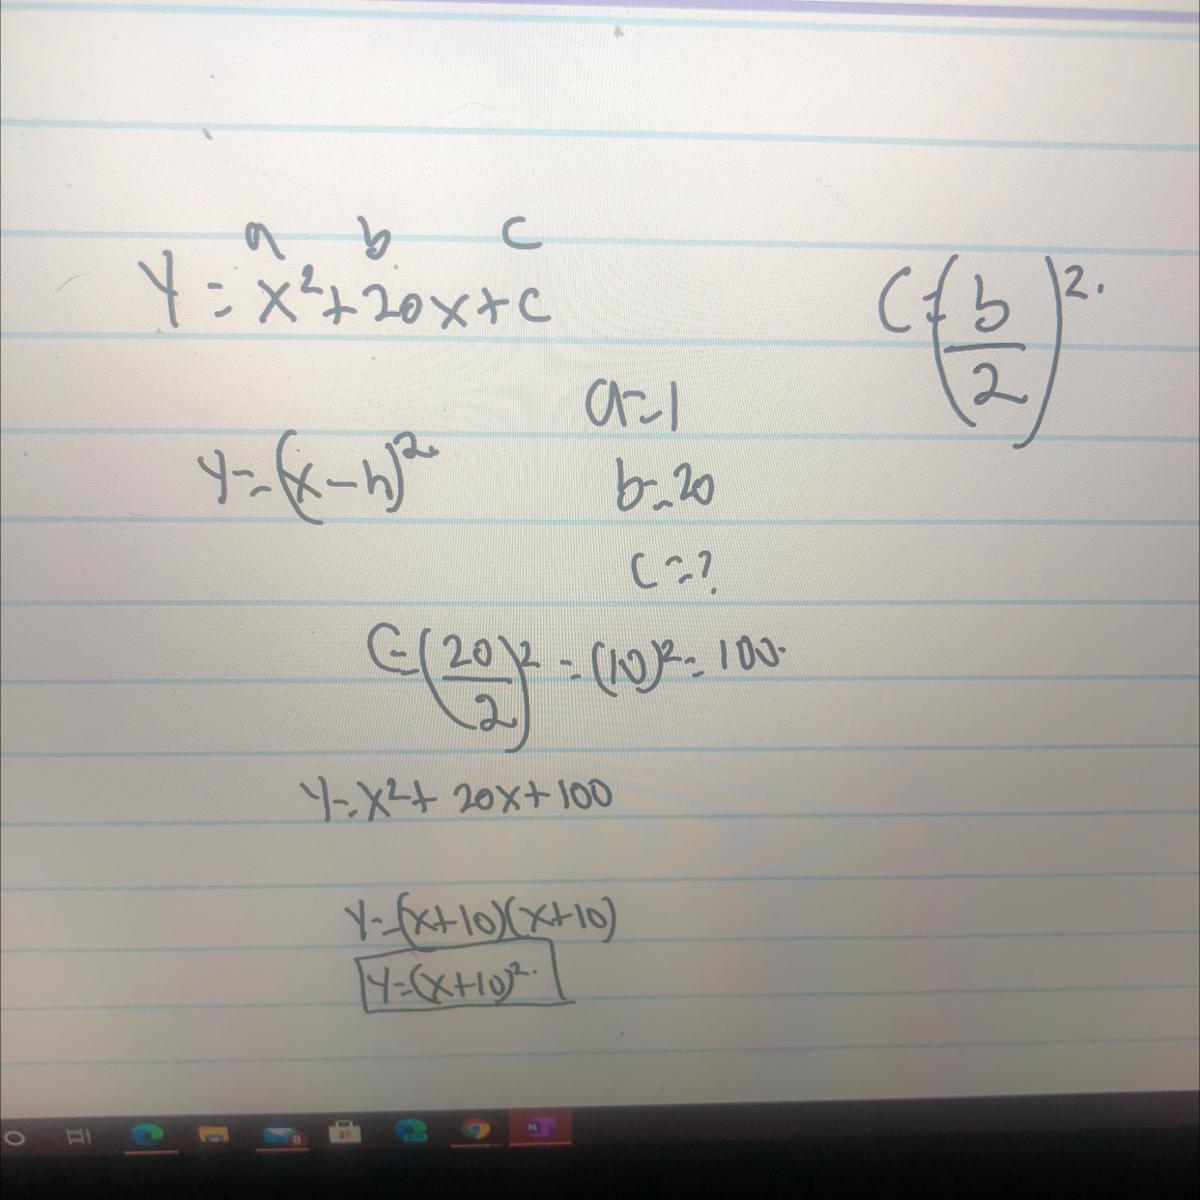 a b c
Y = x²+20x+c
C=(b/2)².
a=1
y=(x-h)².
b=20
c=?
C=(20/2)²=(10)²=100.
Y=x²+20x+100
Y=(x+10)(x+10)
Y=(x+10)².